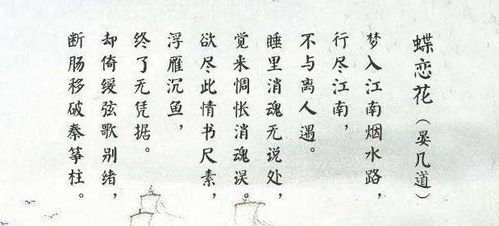 蝶恋花（晏几道）
梦入江南烟水路，
行尽江南，
不与离人遇。
睡里消魂无说处，
觉来惆怅消魂误。
欲尽此情书尺素，
浮雁沉鱼，
终了无凭据。
却倚缓弦歌别绪，
断肠移破秦筝柱。